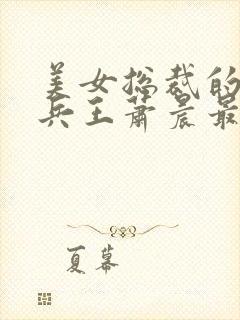 美女总裁的
兵王萧晨最
夏幕